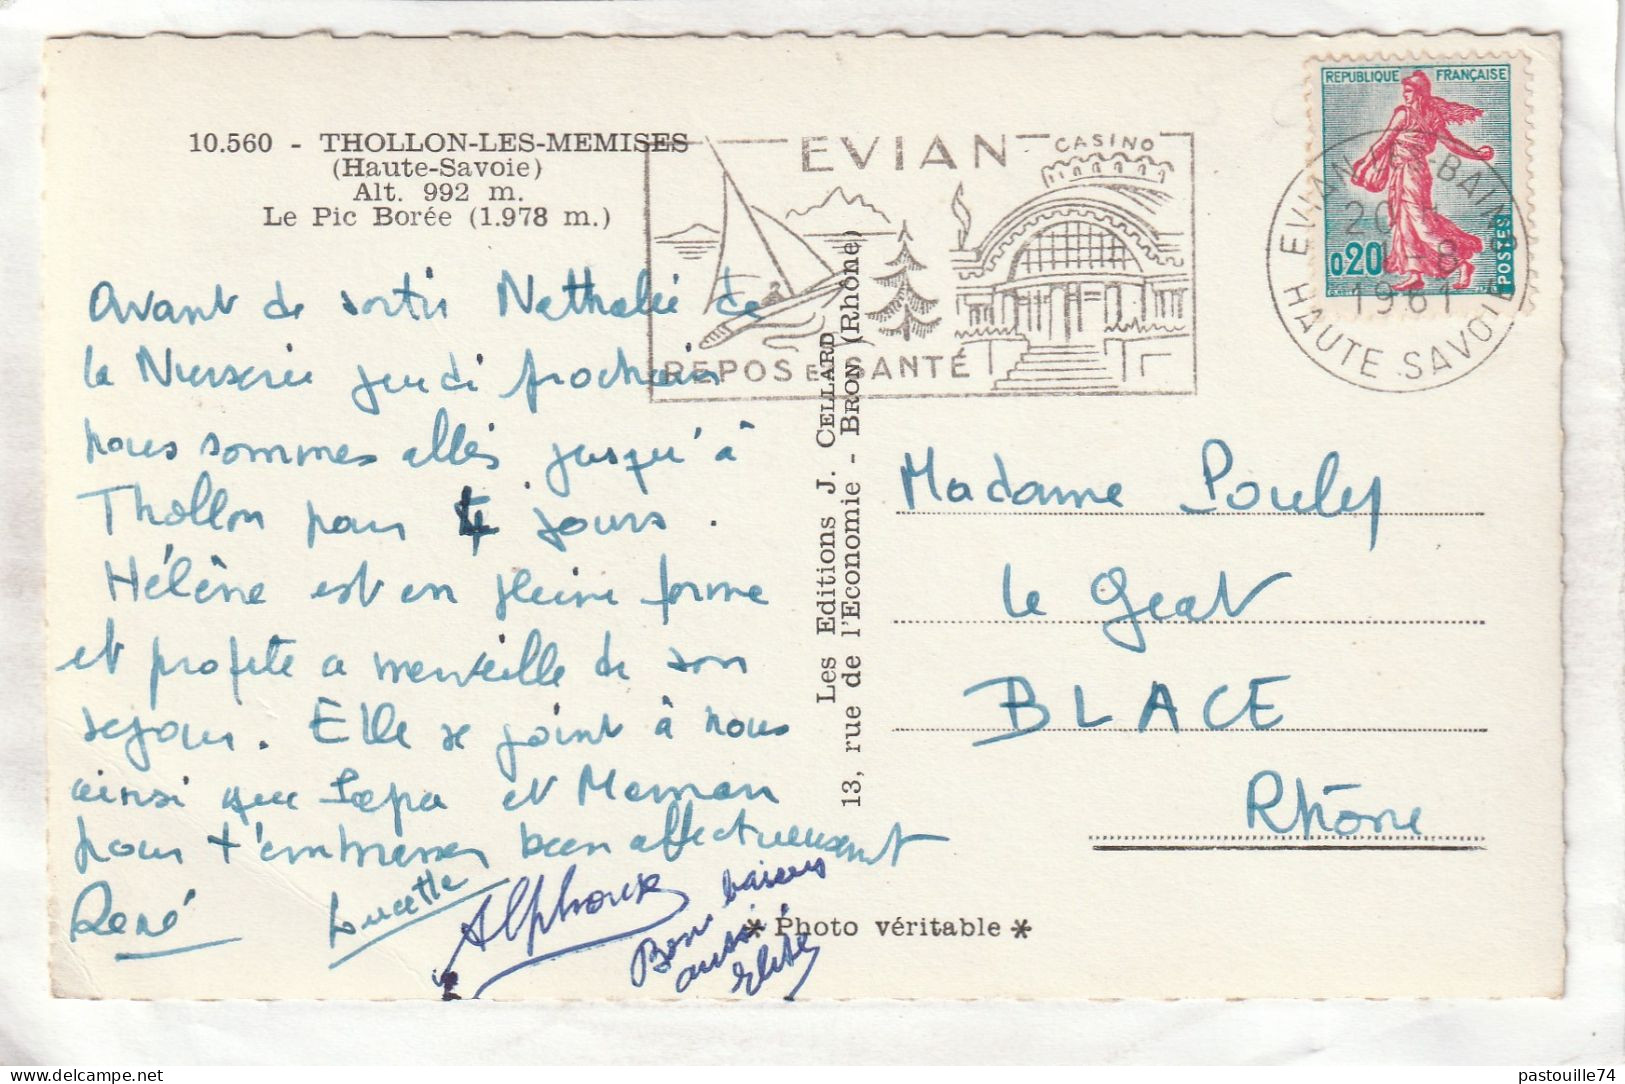 10.560 - THOLLON-LES-MEMISES
(Haute-Savoie)
Alt. 992 m.
Le Pic Borée (1.978 m.)
EVIAN
CASINO
REPOS ET SANTÉ
REPUBLIQUE FRANÇAISE
0,20
POSTES
EVIAN-LES-BAINS
20
-8
1961
HAUTE SAVOIE
Avant de sortir Nathalie de
la Nurserie jeudi prochain
nous sommes allés jusqu'à
Thollon pour 4 jours.
Hélène est en pleine forme
et profite a merveille de son
sejour. Elle se joint à nous
ainsi que Papa et Maman
pour t'embrasser bien affectueusement
René
Lucette
Alphonse
Bons baisers
aussi
Les Editions J. CELLARD
13, rue de l'Economie - BRON (Rhône)
Madame Pouly
le Geat
BLACE
Rhône
* Photo véritable *
pastouille74